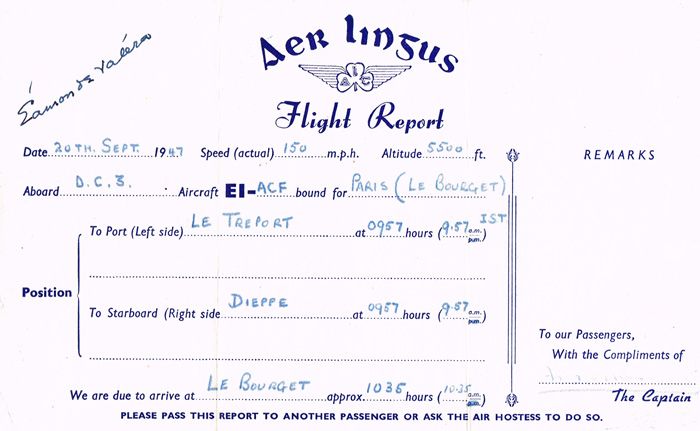 Éamon de Valéra
Aer Lingus
I A C
Flight Report
Date 20TH. SEPT. 1947 Speed (actual) 150 m.p.h. Altitude 5500 ft.
Aboard D.C.3. Aircraft EI-ACF bound for PARIS (LE BOURGET)
Position
To Port (Left side) LE TREPORT at 0957 hours (9.57 a.m. p.m.) IST
To Starboard (Right side DIEPPE at 0957 hours (9.57 a.m. p.m.)
We are due to arrive at LE BOURGET approx. 1035 hours (10.35 a.m. p.m.)
REMARKS
To our Passengers,
With the Compliments of
The Captain
PLEASE PASS THIS REPORT TO ANOTHER PASSENGER OR ASK THE AIR HOSTESS TO DO SO.